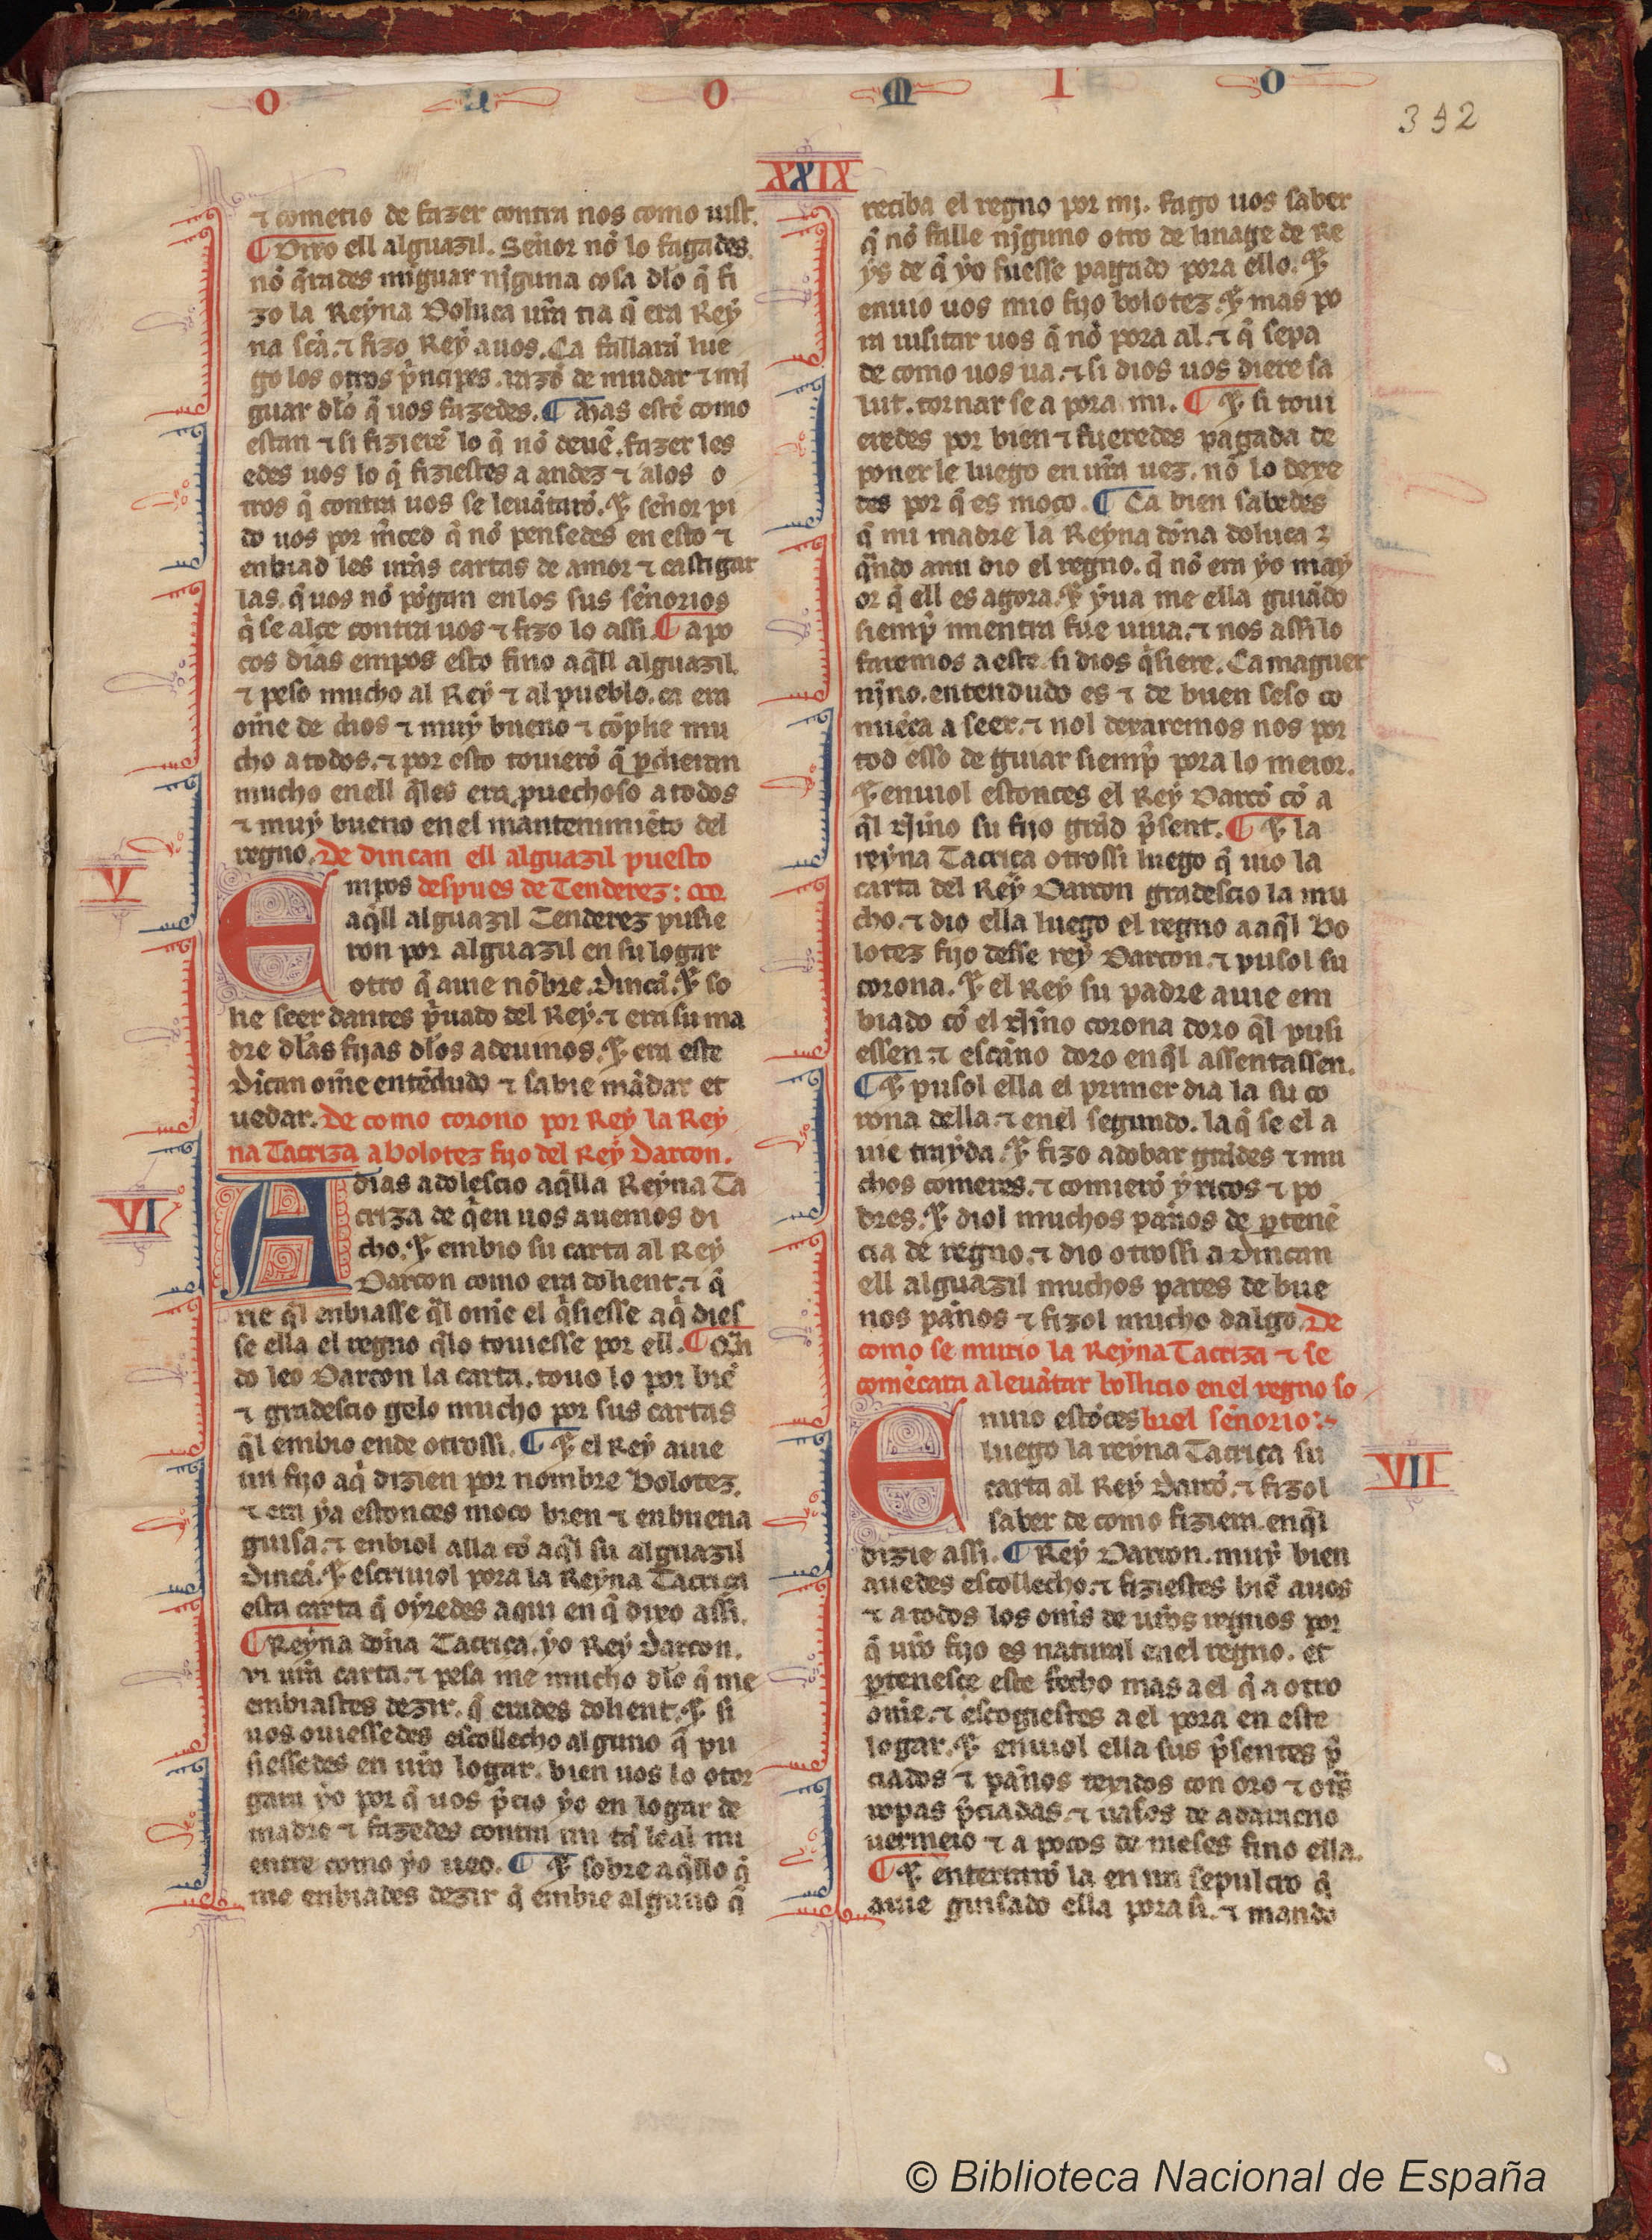 O U O M I O
392
XXIX
⁊ cometio de fazer contra nos como uist.
¶ Dixo ell alguazil. Sen̄or nō lo fagades.
nō q̄rades mīguar nīguna cosa dlo q̄ fi
zo la Reẏna Doluca ur̄a tia q̄ era Reẏ
na sc̄a. ⁊ fizo Reẏ auos. Ca fallarā lue
go los otros p̄ncipes. razō de mudar ⁊ mī
guar dlo q̄ uos fazedes. ¶ Mas estē como
estan ⁊ si fizierē lo q̄ nō deuē. fazer les
edes uos lo q̄ fiziestes a andez ⁊ alos o
tros q̄ contra uos se leuātarō. ⁊ sen̄or pi
do uos por m̄ced q̄ nō pensedes en esto ⁊
enbiad les ur̄as cartas de amor ⁊ castigar
las. q̄ uos nō pōgan en los sus sen̄orios
q̄ se alçe contra uos ⁊ fizo lo assi. ¶ A po
cos dias empos esto fino aq̄ll alguazil.
⁊ peso mucho al Reẏ ⁊ al pueblo. ca era
om̄e de dios ⁊ muẏ bueno ⁊ cōplie mu
cho a todos. ⁊ por esto touierō q̄ ꝑdieran
mucho en ell q̄les era ꝓuechoso a todos
⁊ muẏ bueno en el mantenimiēto del
regno. De dincan ell alguazil puesto
V
Empos despues de Tenderez:
aq̄ll alguazil Tenderez pusie
ron por alguazil en su logar
otro q̄ auie nōbre. Dincā. ⁊ so
lie seer dantes p̄uado del Reẏ. ⁊ era su ma
dre dlas fijas dlos adeuinos. ⁊ era este
Dīcan om̄e entēdudo ⁊ sabie mādar et
uedar. De como corono por Reẏ la Reẏ
na Tacriza a bolotez fijo del Reẏ Darcon.
VI
A dias adolescio aq̄lla Reẏna Ta
criza de q̄en uos auemos di
cho. ⁊ embio su carta al Reẏ
Darcon como era dolient. ⁊ q̄
rie q̄l enbiasse q̄l om̄e el q̄siesse aq̄ dies
se ella el regno q̄lo touiesse por ell. ¶ Qn̄
do leo Darcon la carta. touo lo por biē
⁊ gradescio gelo mucho por sus cartas
q̄l embio ende otrossi. ¶ ⁊ el Reẏ auie
un fijo aq̄ dizien por nombre bolotez.
⁊ era ẏa estonces moço bien ⁊ en buena
guisa. ⁊ enbiol alla cō aq̄l su alguazil
Dincā. ⁊ escriuiol pora la Reẏna Tacrica
esta carta q̄ oẏredes aqui en q̄ dixo assi.
¶ Reẏna don̄a Tacrica. ẏo Reẏ Darcon.
vi ur̄a carta. ⁊ pesa me mucho dlo q̄ me
embiastes dezir. q̄ erades dolient. ⁊ si
uos ouiessedes escollecho alguno q̄ pu
siessedes en ur̄o logar. bien uos lo otor
gara ẏo por q̄ uos p̄cio ẏo en logar de
madre ⁊ fazedes contra mi tā leal mi
entre como ẏo ueo. ¶ ⁊ sobre aq̄llo q̄
me enbiades dezir q̄ embie alguno q̄
reciba el regno por mj. fago uos saber
q̄ nō falle nīguno otro de linage de Re
ẏs de q̄ ẏo fuesse pagado pora ello. ⁊
enuio uos mio fijo bolotez. ⁊ mas po
ra uisitar uos q̄ nō pora al. ⁊ q̄ sepa
de como uos ua. ⁊ si dios uos diere sa
lut. tornar se a pora mi. ¶ ⁊ si toui
eredes por bien ⁊ fueredes pagada de
poner le luego en ur̄a uez. nō lo dexe
des por q̄ es moço. ¶ Ca bien sabedes
q̄ mi madre la Reẏna don̄a doluca
q̄ndo ami dio el regno. q̄ nō era ẏo maẏ
or q̄ ell es agora. ⁊ ẏua me ella guiādo
siemp̄ mientra fue uiua. ⁊ nos assi lo
faremos a este si dios q̄siere. Ca maguer
nīno. entendudo es ⁊ de buen seso co
miēça a seer. ⁊ nol dexaremos nos por
tod esso de guiar siemp̄ pora lo meior.
⁊ enuiol estonces el Reẏ Darcō cō a
q̄l nīno su fijo grād p̄sent. ¶ ⁊ la
reẏna Tacrica otrossi luego q̄ uio la
carta del Reẏ Darcon gradescio la mu
cho. ⁊ dio ella luego el regno a aq̄l Bo
lotez fijo desse reẏ Darcon. ⁊ pusol su
corona. ⁊ el Reẏ su padre auie em
biado cō el nīno corona doro q̄l pusi
essen. ⁊ escān̄o doro en q̄l assentassen.
¶ ⁊ pusol ella el primer dia la su co
rona della. ⁊ en el segundo. la q̄ se el a
uie traẏda. ⁊ fizo adobar grādes ⁊ mu
chos comeres. ⁊ comierō ẏ ricos ⁊ po
bres. ⁊ diol muchos pan̄os de ꝑtenē
cia de regno. ⁊ dio otrossi a Dincan
ell alguazil muchos pares de bue
nos pan̄os ⁊ fizol mucho dalgo. De
como se murio la Reẏna Tacriza ⁊ se
comēçara a leuātar bollicio en el regno so
VII
Enuio estōces briel sen̄orio:
luego la reẏna Tacrica su
carta al Reẏ Darcō. ⁊ fizol
saber de como fiziera. en q̄l
dizie assi. ¶ Reẏ Darcon. muẏ bien
auedes escollecho. ⁊ fiziestes biē auos
⁊ a todos los om̄s de ur̄os regnos por
q̄ ur̄o fijo es natural en el regno. et
ꝑtenesçe este fecho mas a el q̄ a otro
om̄e. ⁊ escogiestes a el pora en este
logar. ⁊ enuiol ella sus p̄sentes p̄
ciados ⁊ pan̄os texidos con oro ⁊ otr̄s
ropas p̄ciadas. ⁊ uasos de adaracno
uermeio ⁊ a pocos de meses fino ella.
¶ ⁊ enterrarō la en un sepulcro q̄
auie guisado ella pora si. ⁊ mando
© Biblioteca Nacional de España